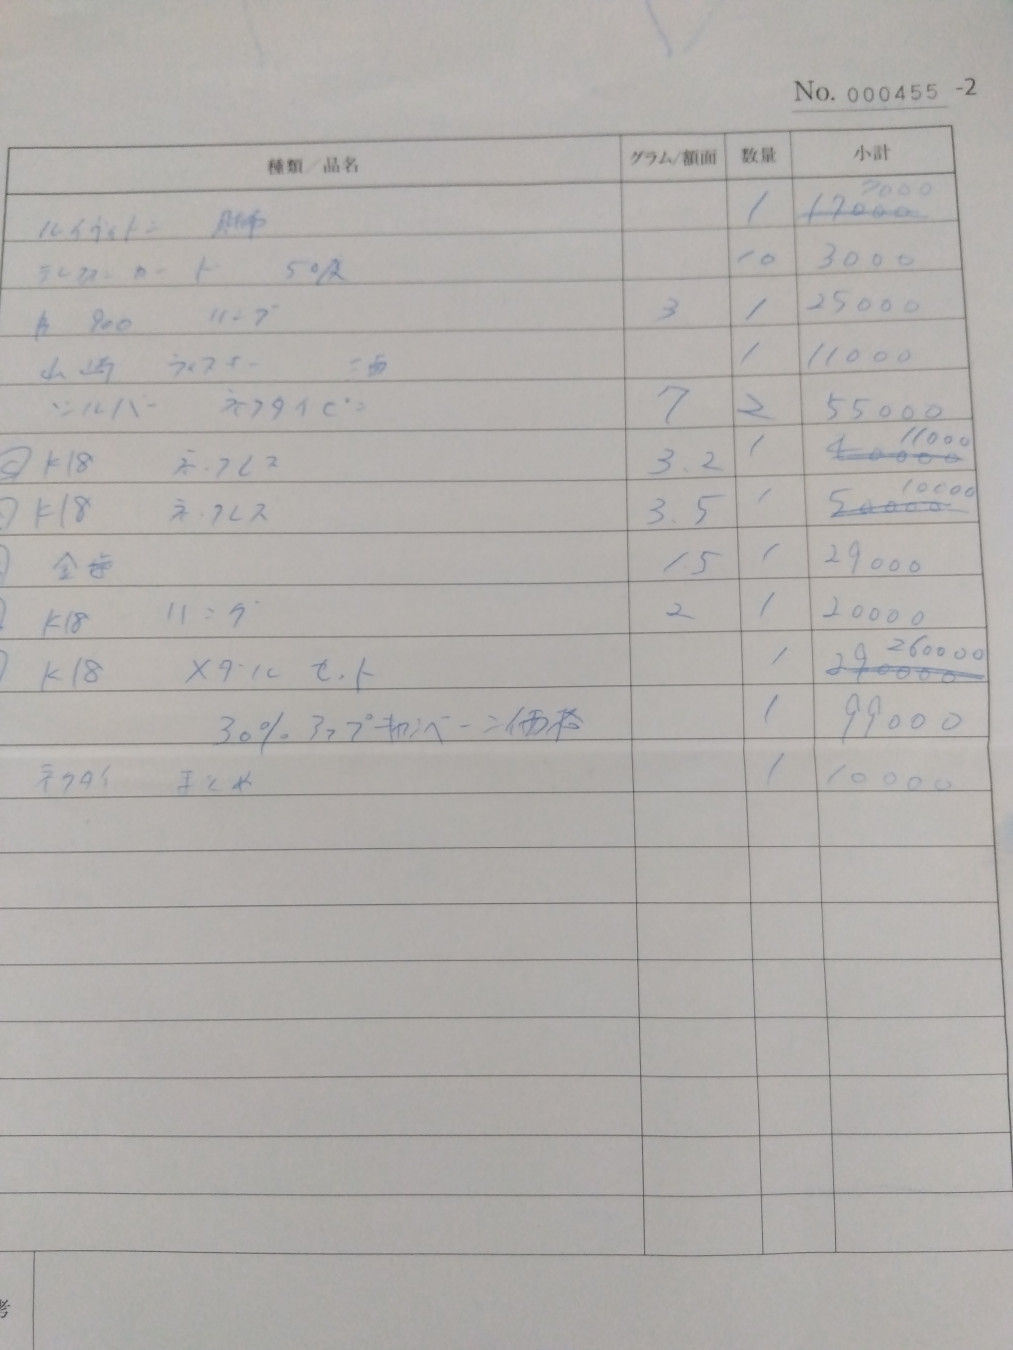 No. 000455 -2
種類／品名 グラム/額面 数量 小計
ルイヴィトン 財布 1 17000 7000
テレフォンカード 50度 10 3000
900 リング 3 1 25000
山崎 ウィスキー 酒 1 11000
シルバー ネクタイピン 7 2 55000
K18 ネックレス 3.2 1 40000 11000
K18 ネックレス 3.5 1 50000 10000
金歯 1.5 1 29000
K18 リング 2 1 20000
K18 メダル セット 1 290000 260000
30% アップキャンペーン価格 1 99000
ネクタイ まとめ 1 10000
考